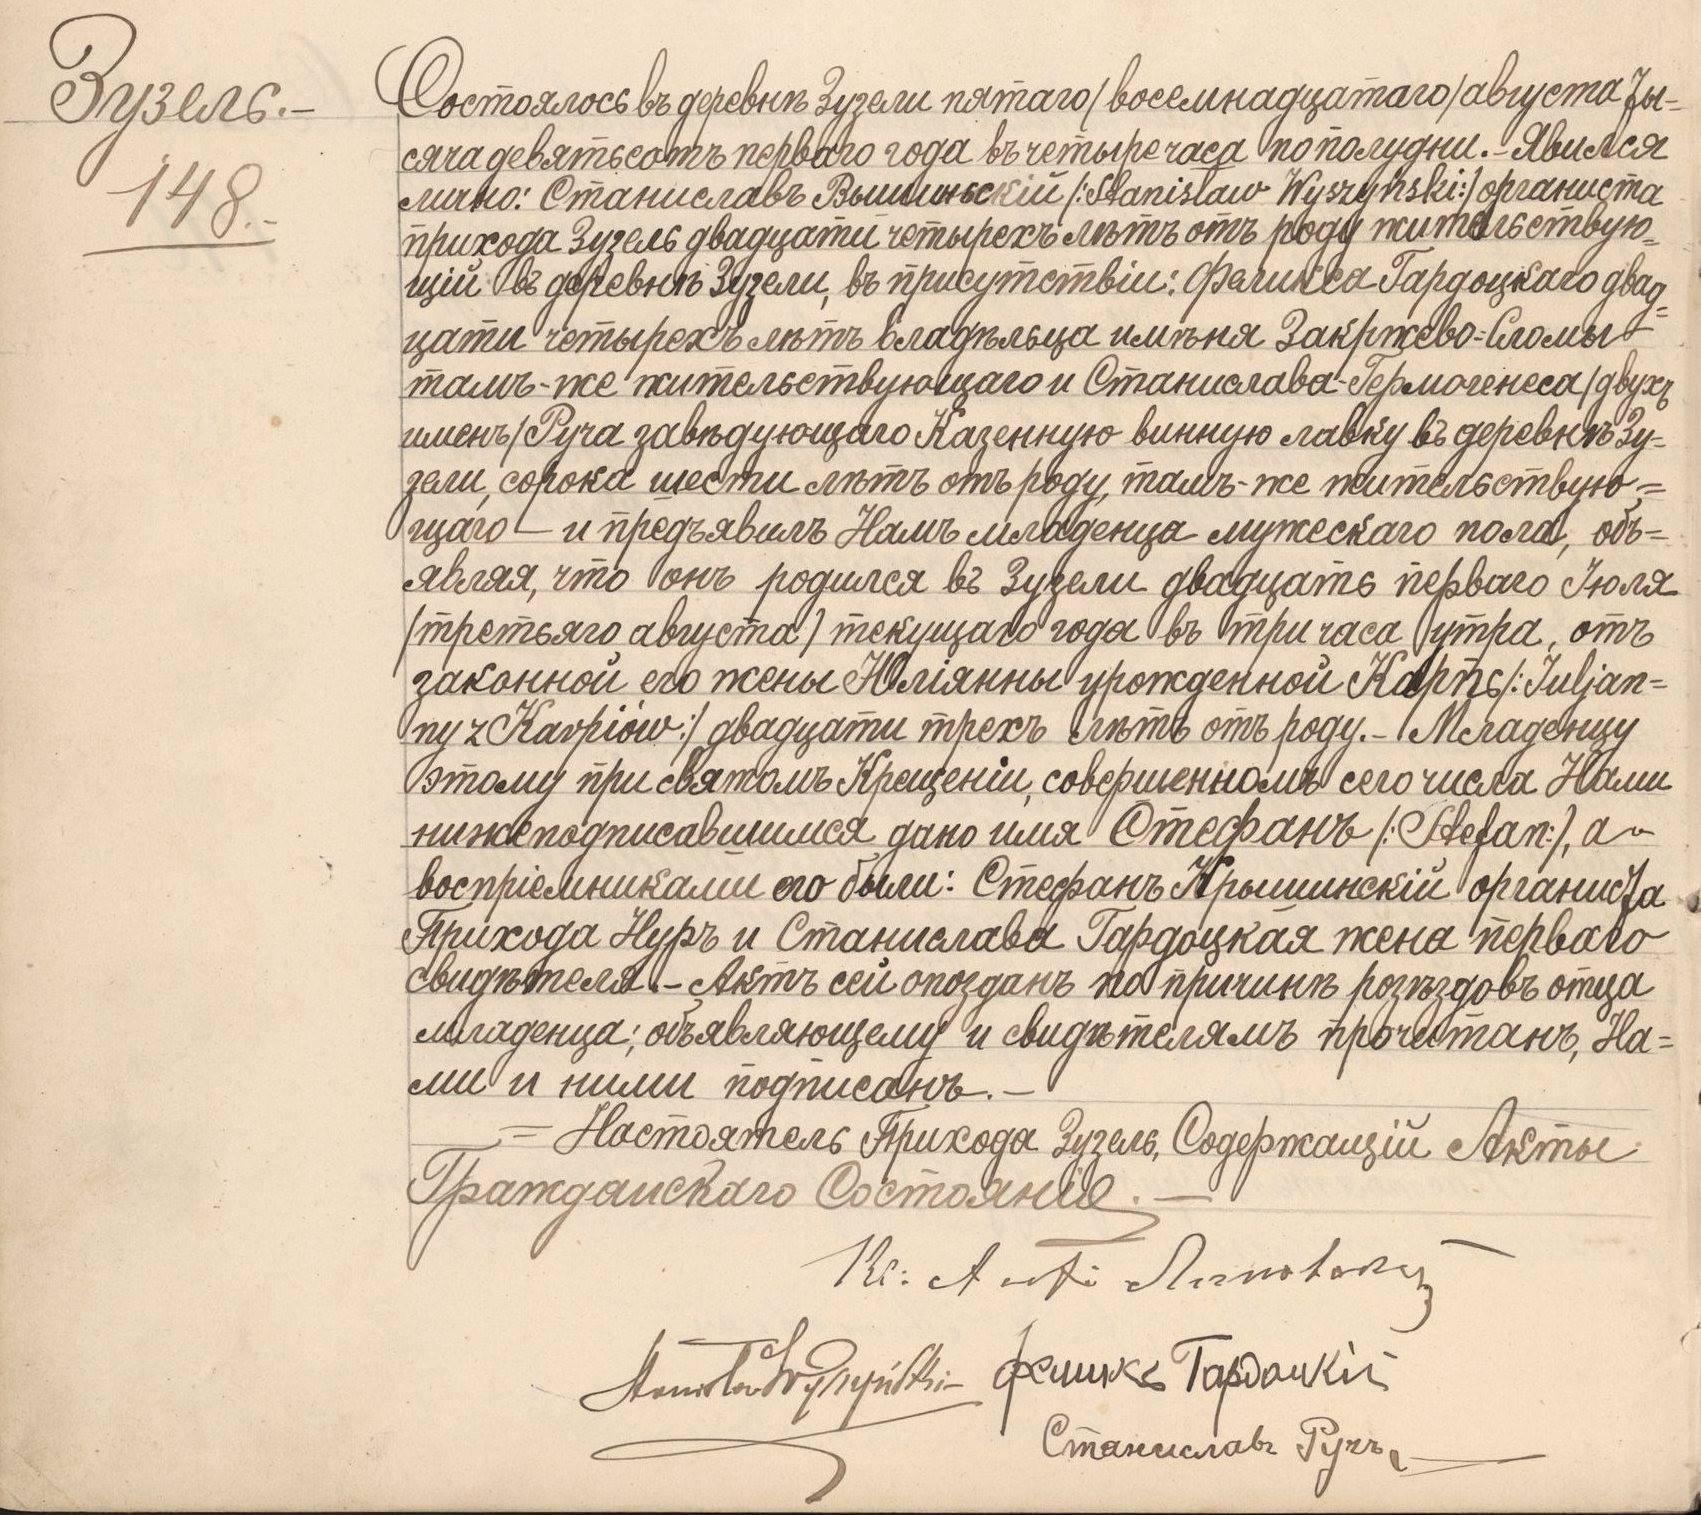 Зузель.-
148.-
Состоялось въ деревнѣ Зузели пятаго / восемнадцатаго / августа ты-
сяча девятьсотъ перваго года въ четыре часа по полудни.- Явился
лично: Станиславъ Вышиньскій /: Stanisław Wyszyński :/ органиста
прихода Зузель двадцати четырехъ лѣтъ отъ роду жительствую=
щій въ деревнѣ Зузели, въ присутствіи: Феликса Гардоцкаго двад=
цати четырехъ лѣтъ владѣльца имѣня Закржево=Сломы
тамъ-же жительствующаго и Станислава-Гермогенеса / двухъ
именъ / Руча завѣдующаго Казенную винную лавку въ деревнѣ Зу=
зели, сорока шести лѣтъ отъ роду, тамъ-же жительствую=
щаго — и предъявилъ Намъ младенца мужескаго пола, объ=
являя, что онъ родился въ Зузели двадцать перваго Іюля
/ третьяго августа / текущаго года въ три часа утра, отъ
законной его жены Юліянны урожденной Карпь /: Juljan=
ny z Karpiów :/ двадцати трехъ лѣтъ отъ роду.- Младенцу
этому при святомъ Крещеніи, совершенномъ сего числа Нами
нижеподписавшимся дано имя Стефанъ /: Stefan :/, а
воспріемниками его были: Стефанъ Крышинскій органиста
Прихода Нуръ и Станислава Гардоцкая жена перваго
свидѣтеля.- Актъ сей опозданъ по причинѣ розѣздовъ отца
младенца; объявляющему и свидѣтелямъ прочитанъ, На=
ми и ними подписанъ.-
= Настоятель Прихода Зузель, Содержащій Акты
Гражданскаго Состояніе. —
Кс: Липовскій
Stanisław Wyszyński Феликсъ Гардоцкій
Станиславъ Ручъ